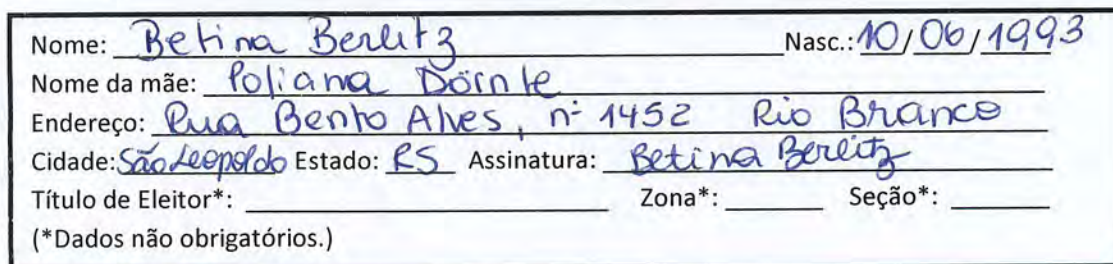 Nome: Betina Berlitz Nasc.: 10/06/1993
Nome da mãe: Poliana Dörnte
Endereço: Rua Bento Alves, nº 1452 Rio Branco
Cidade: São Leopoldo Estado: RS Assinatura: Betina Berlitz
Título de Eleitor*: Zona*: Seção*:
(*Dados não obrigatórios.)